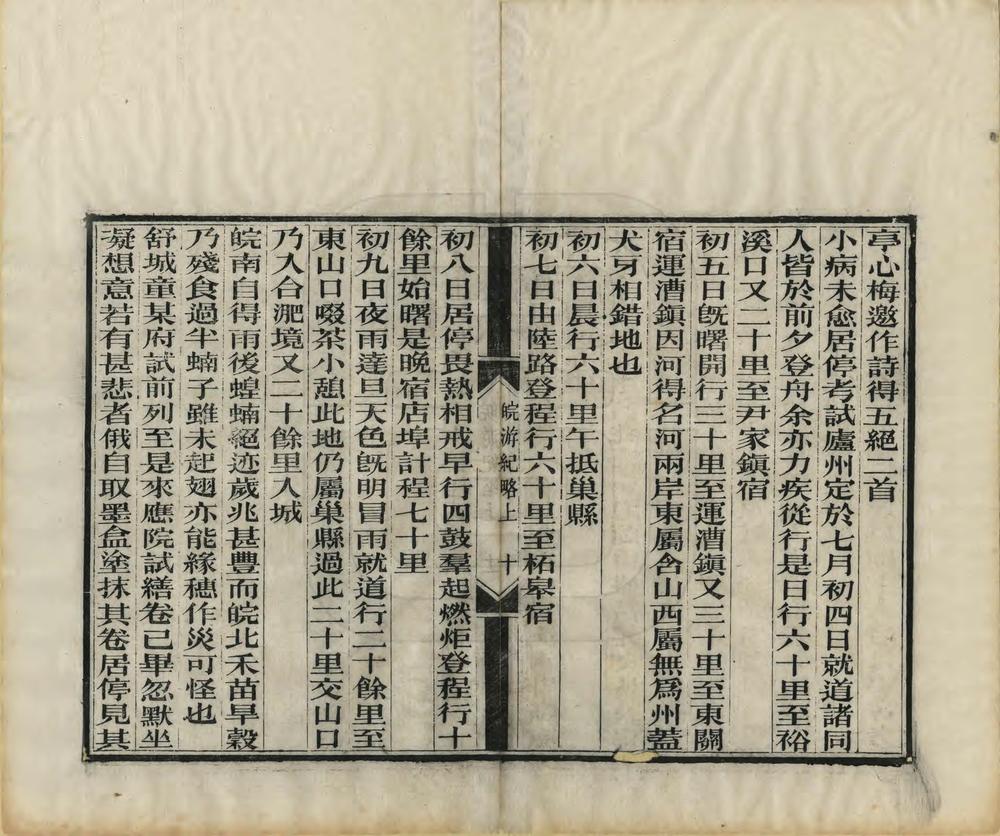 亭心梅邀作詩得五絕二首
小病未愈居停考試廬州定於七月初四日就道諸同
人皆於前夕登舟余亦力疾從行是日行六十里至裕
溪口又二十里至尹家鎮宿
初五日旣曙開行三十里至運漕鎮又三十里至東關
宿運漕鎮因河得名河兩岸東屬含山西屬無爲州蓋
犬牙相錯地也
初六日晨行六十里午抵巢縣
初七日由陸路登程行六十里至柘皋宿
皖游紀略上 十
初八日居停畏熱相戒早行四鼓羣起燃炬登程行十
餘里始曙是晚宿店埠計程七十里
初九日夜雨達旦天色旣明冒雨就道行二十餘里至
東山口啜茶小憩此地仍屬巢縣過此二十里交山口
乃入合淝境又二十餘里入城
皖南自得雨後蝗蝻絕迹歲兆甚豐而皖北禾苗早穀
乃殘食過半蝻子雖未起翅亦能緣穗作災可怪也
舒城童某府試前列至是來應院試繕卷已畢忽默坐
凝想意若有甚悲者俄自取墨盒塗抹其卷居停見其